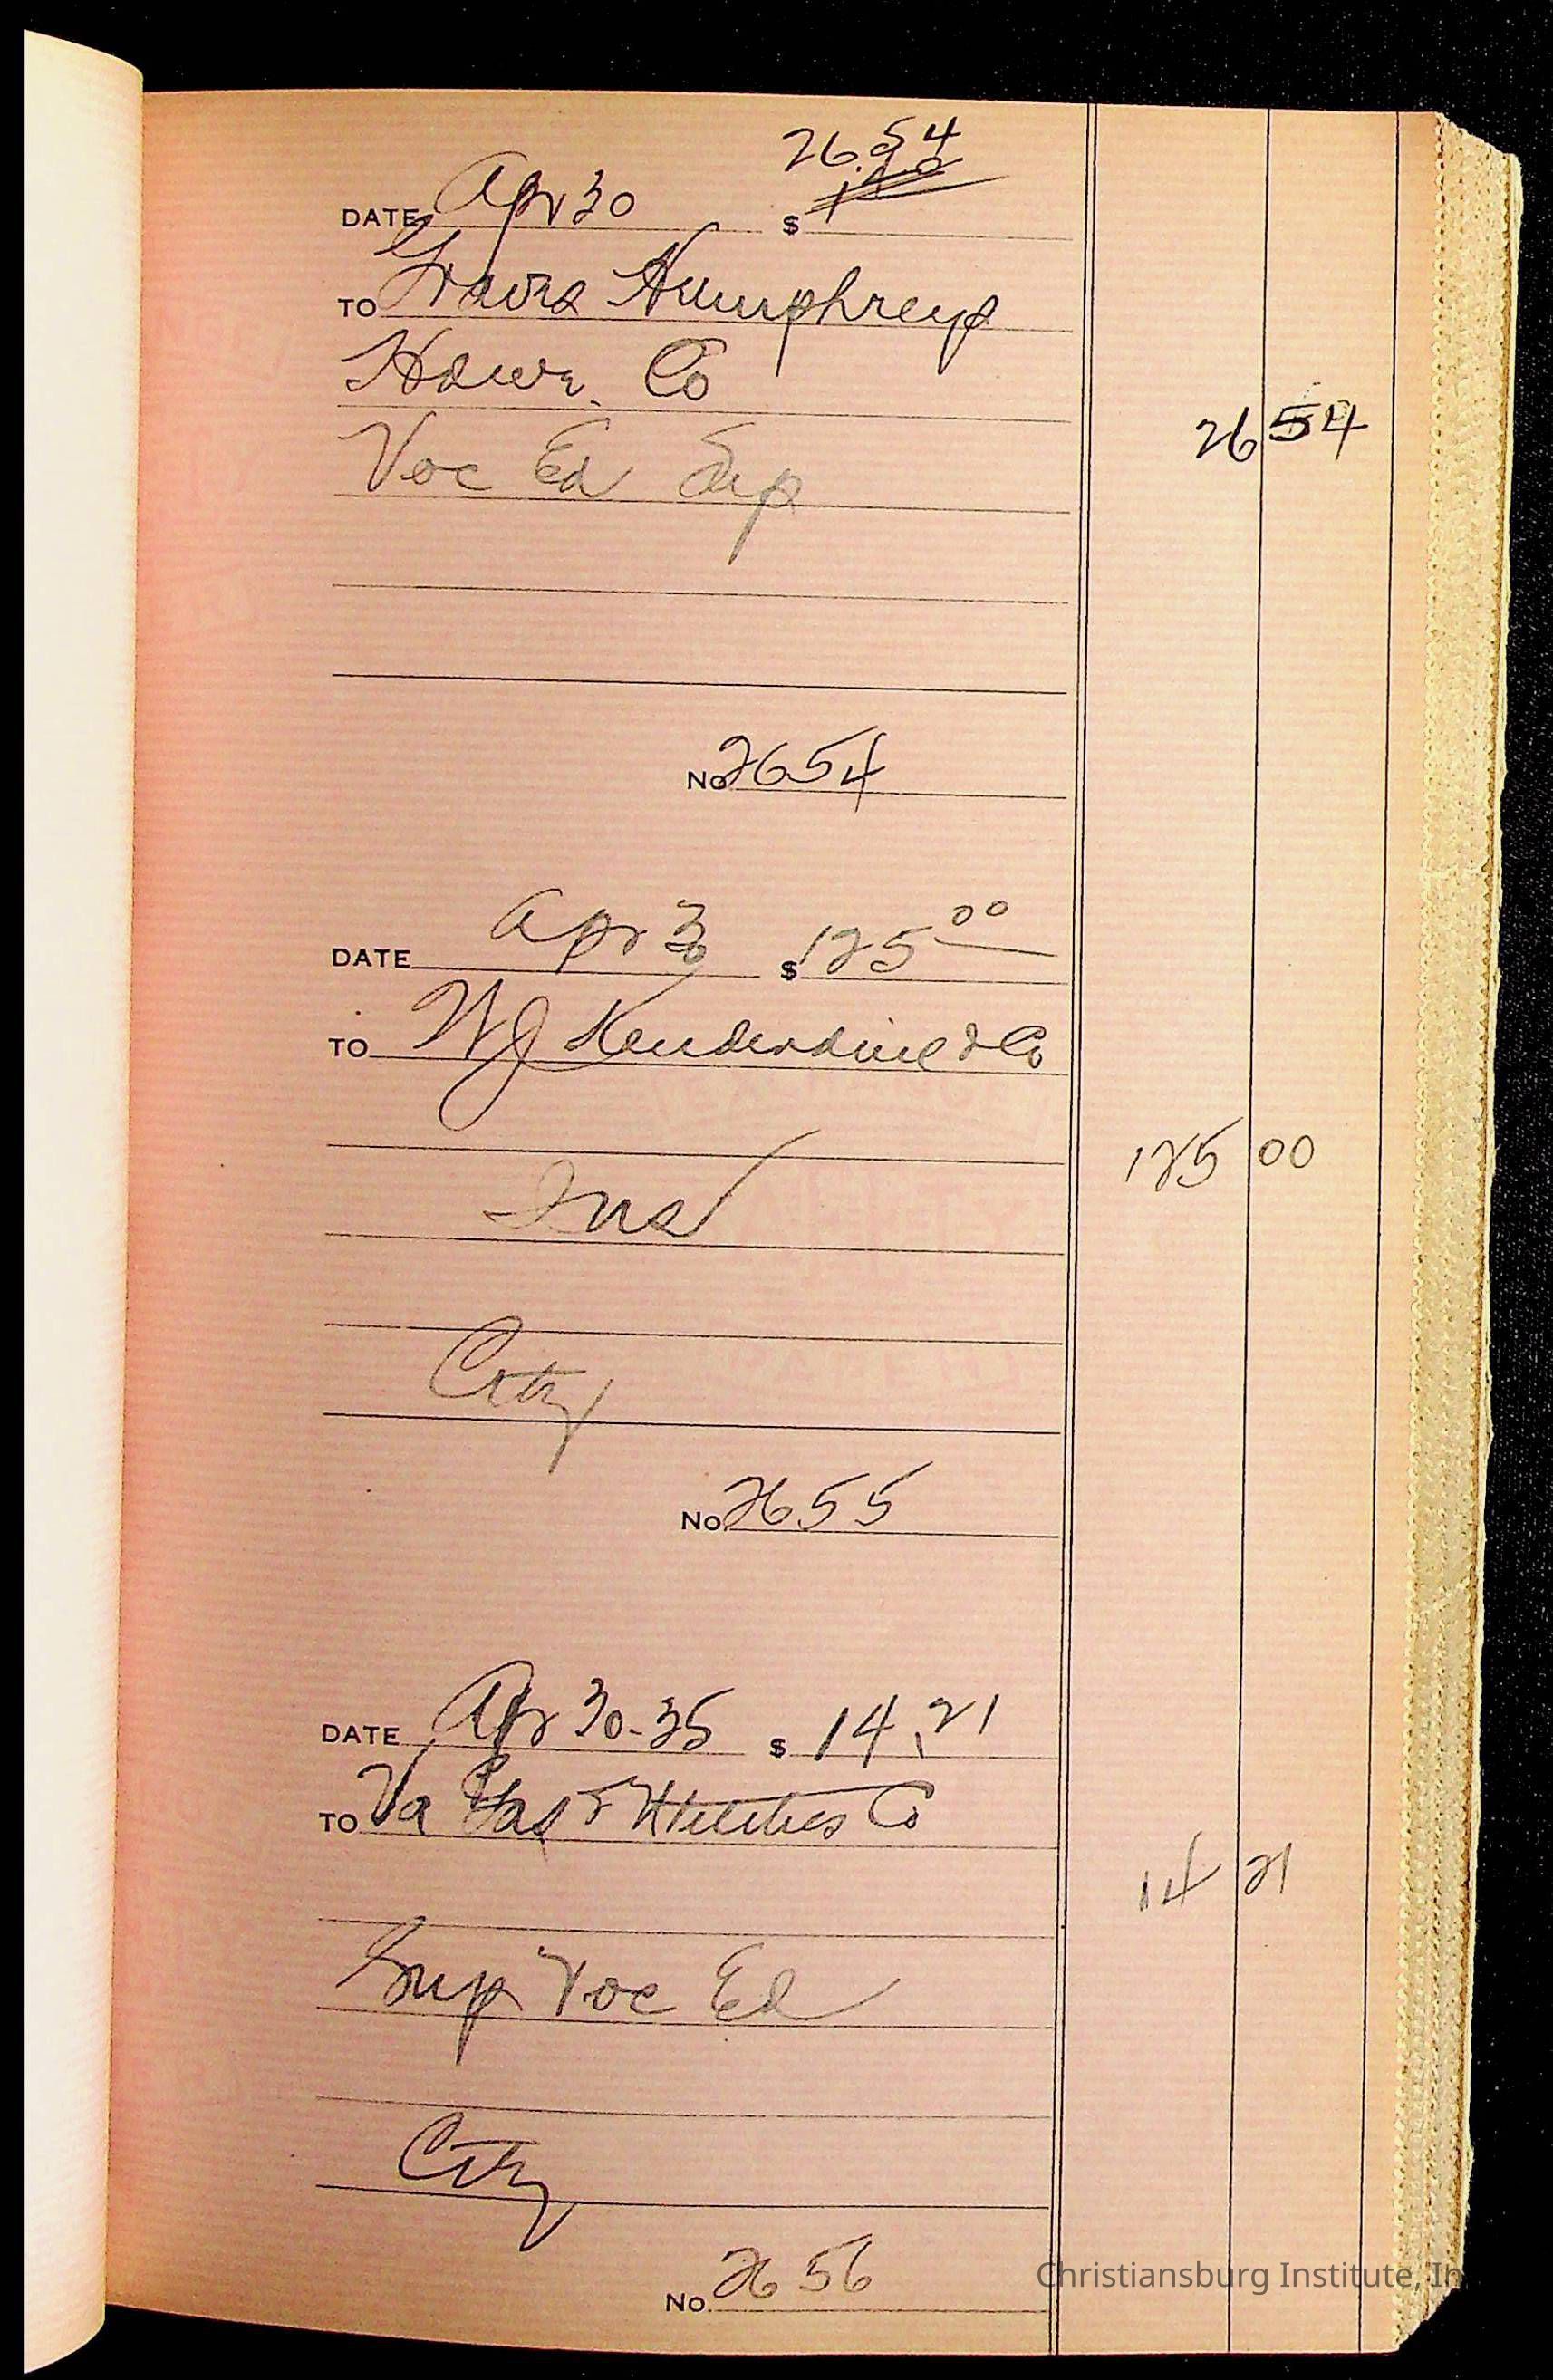 26.54
DATE Apr 30 $
TO Graves Humphreys
Hdwr. Co
26 54
Voc Ed Sup
No 2654
DATE Apr 30 $ 125 00
TO WJ Kenderdine & Co
125 00
Ins
City
No 2655
DATE Apr 30-35 $ 14.21
TO Va Gas & Utilities Co
14 21
Sup Voc Ed
City
No. 2656
Christiansburg Institute, In